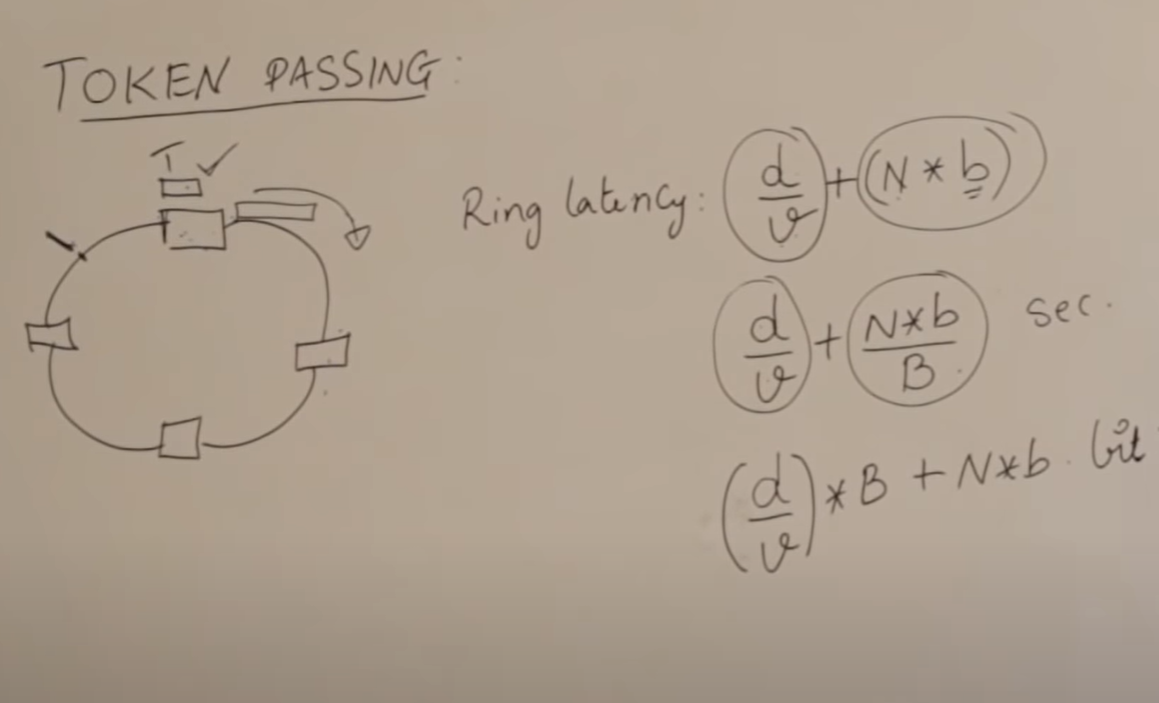 TOKEN PASSING:
T ✓
Ring latency: d/v + (N * b)
d/v + N*b/B sec.
(d/v) * B + N*b. bit